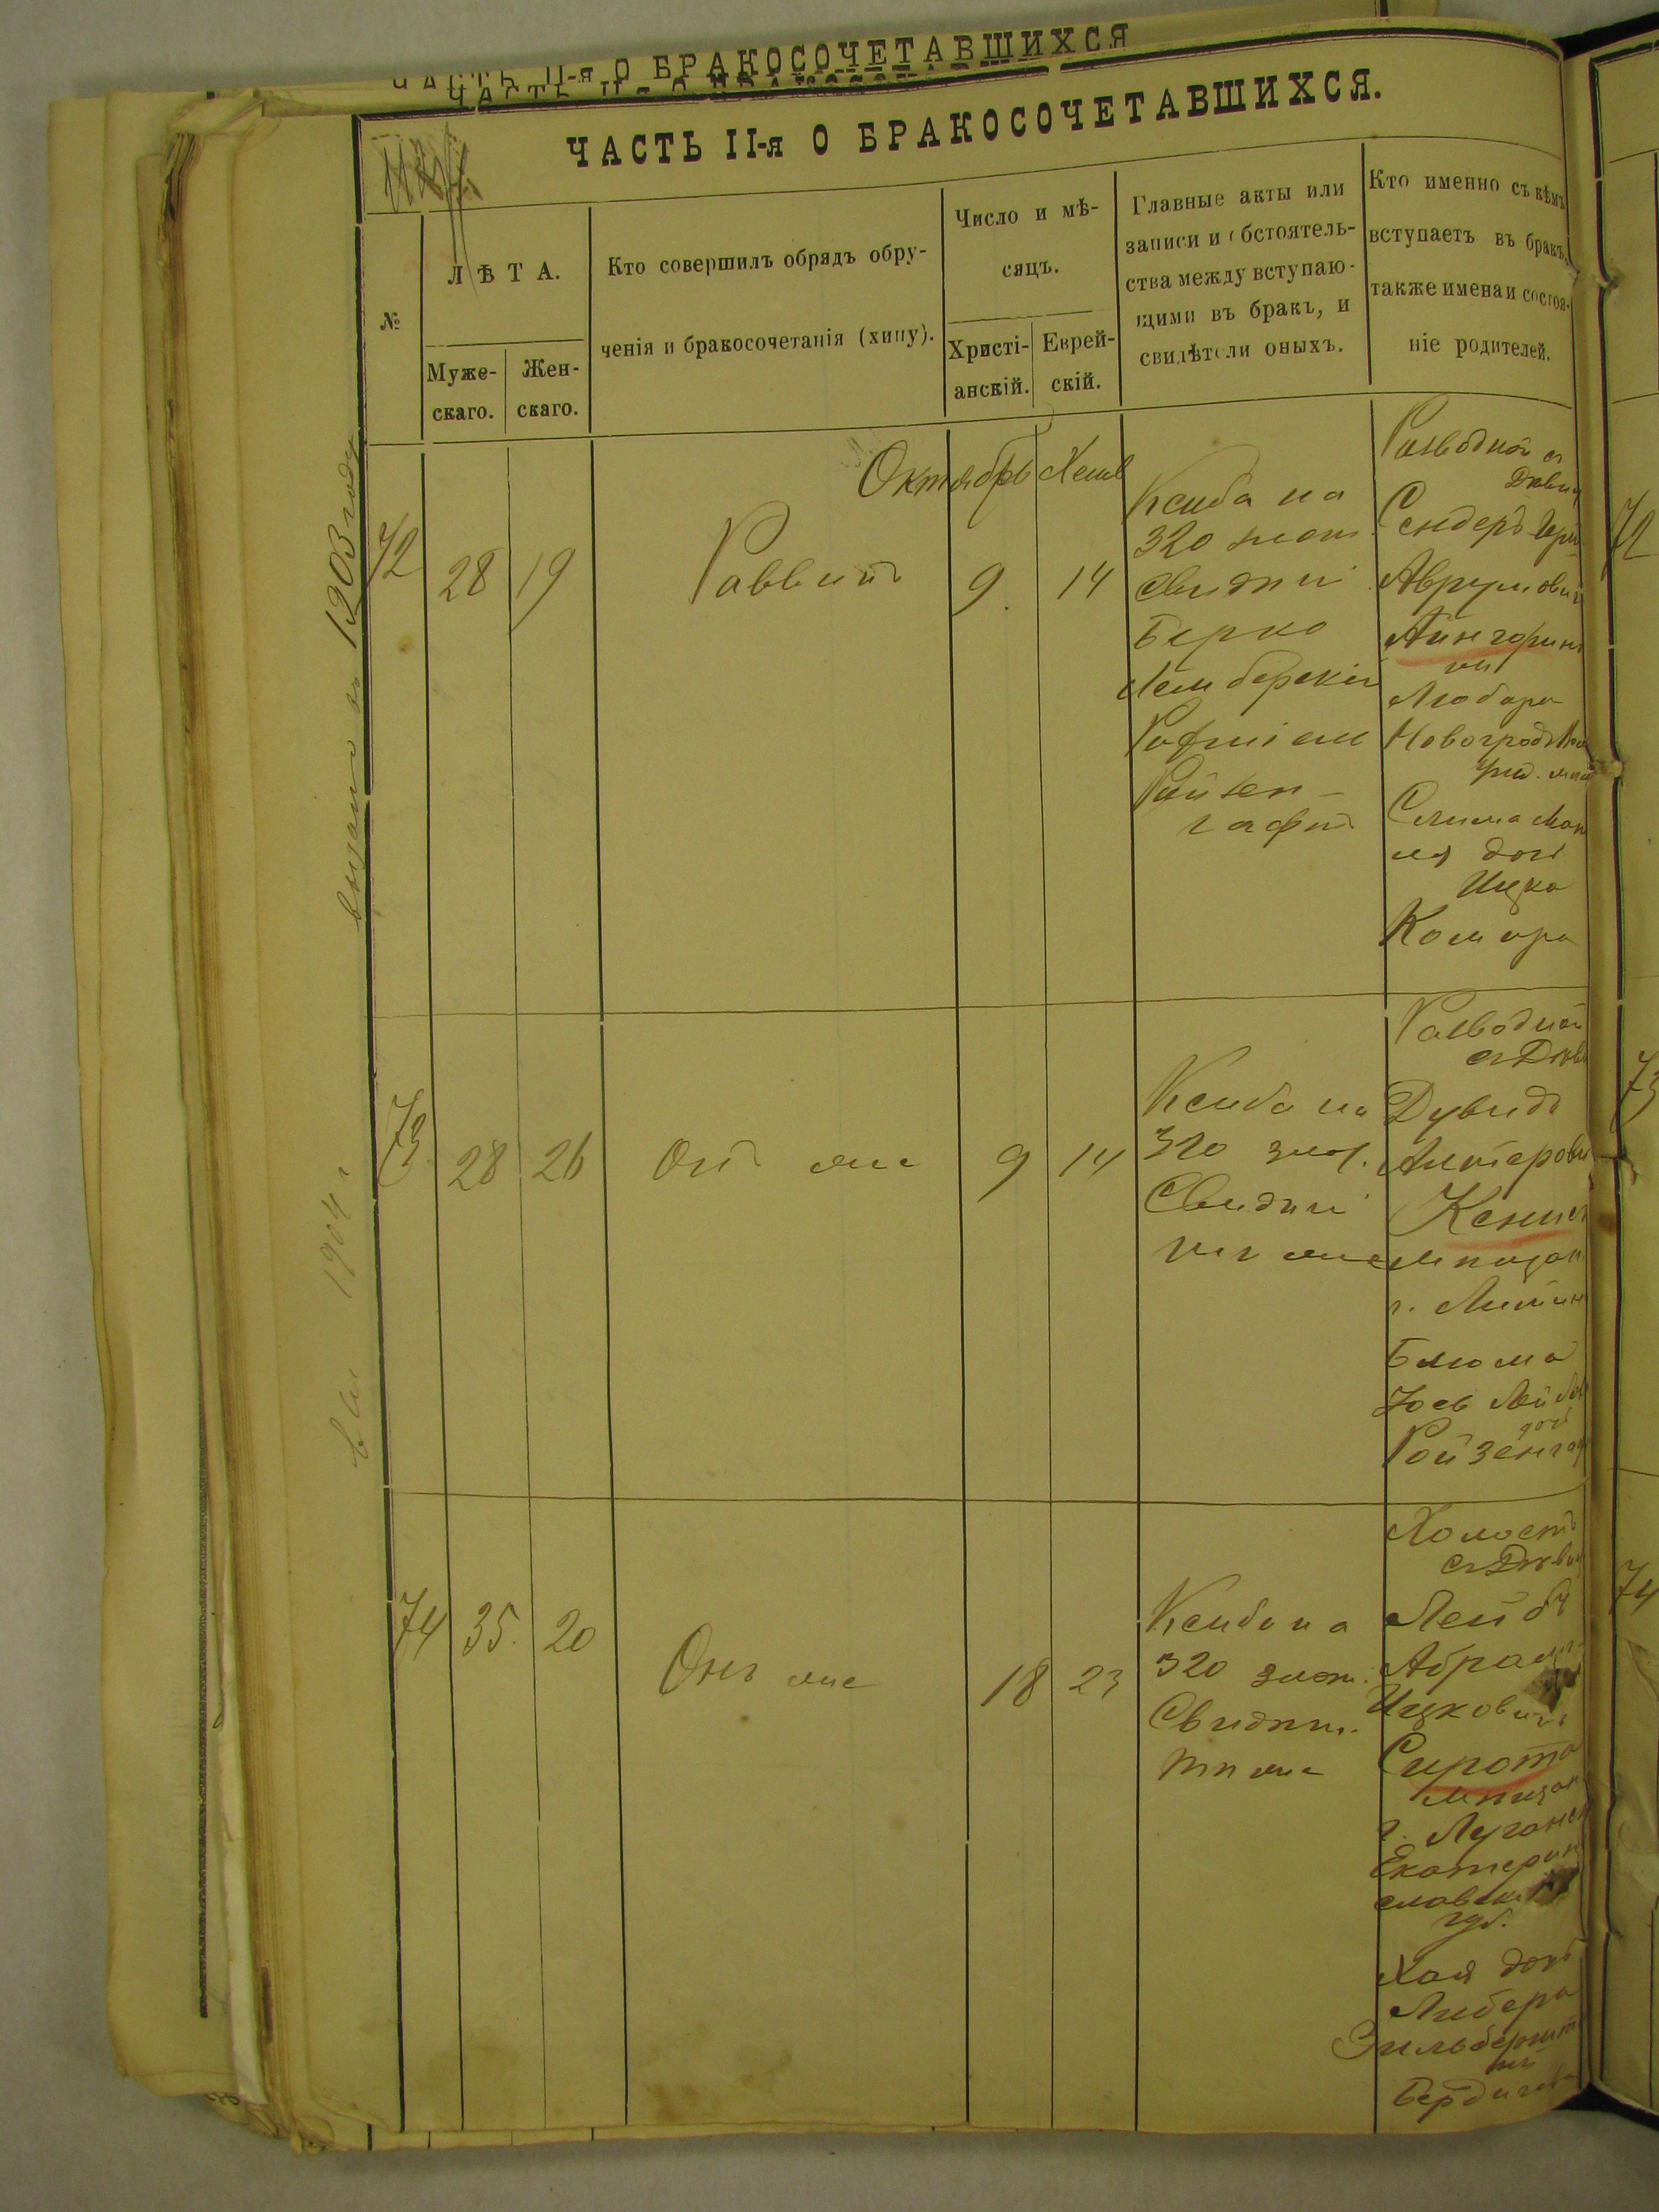 ЧАСТЬ II-я О БРАКОСОЧЕТАВШИХСЯ
ЧАСТЬ II-я О БРАКОСОЧЕТАВШИХСЯ.
№
ЛѢТА.
Муже-
скаго.
Жен-
скаго.
Кто совершилъ обрядъ обру-
ченія и бракосочетанія (хипу).
Число и мѣ-
сяцъ.
Христі-
анскій.
Еврей-
скій.
Главные акты или
записи и обстоятель-
ства между вступаю-
щими въ бракъ, и
свидѣтели оныхъ.
Кто именно съ кѣмъ
вступаетъ въ бракъ,
также имена и состоя-
ніе родителей.
Октябрь Хешв
72
28
19
Раввинъ
9.
14
Ксиба на
320 злот.
Свидѣт
Берко
Лемберскій
Рафиіем
Ройзен-
гафтъ
Разводной съ
Дѣвиц
Сендеръ Герш
Аврумович
Айнгоринъ
Любара
Новоградъ Вол
уѣзд.
Слима Ман
ия дочь
Ицка
Комара
72
73
28
26
Онъ же
9
14
Ксиба на
320 злот.
Свидѣт
тѣ же
Разводной
съ Дѣви
Дувидъ
Алтерови
Кениси
мѣщан
г. Литин
Блюма
Іось Лейбов
дочь
Ройзенгаф
73
74
35.
20
Онъ же
18
23
Ксиба на
320 злот.
Свидѣт.
тѣ же
Холостъ
съ Дѣвиц
Лейбъ
Абрамъ-
Ицковичъ
Сирота
мѣщан
г. Луганск
Екатерин
славской
губ.
Хая дочь
Либера
Зильберштей
Бердичев
74
выдано въ 1903 году
1904 г